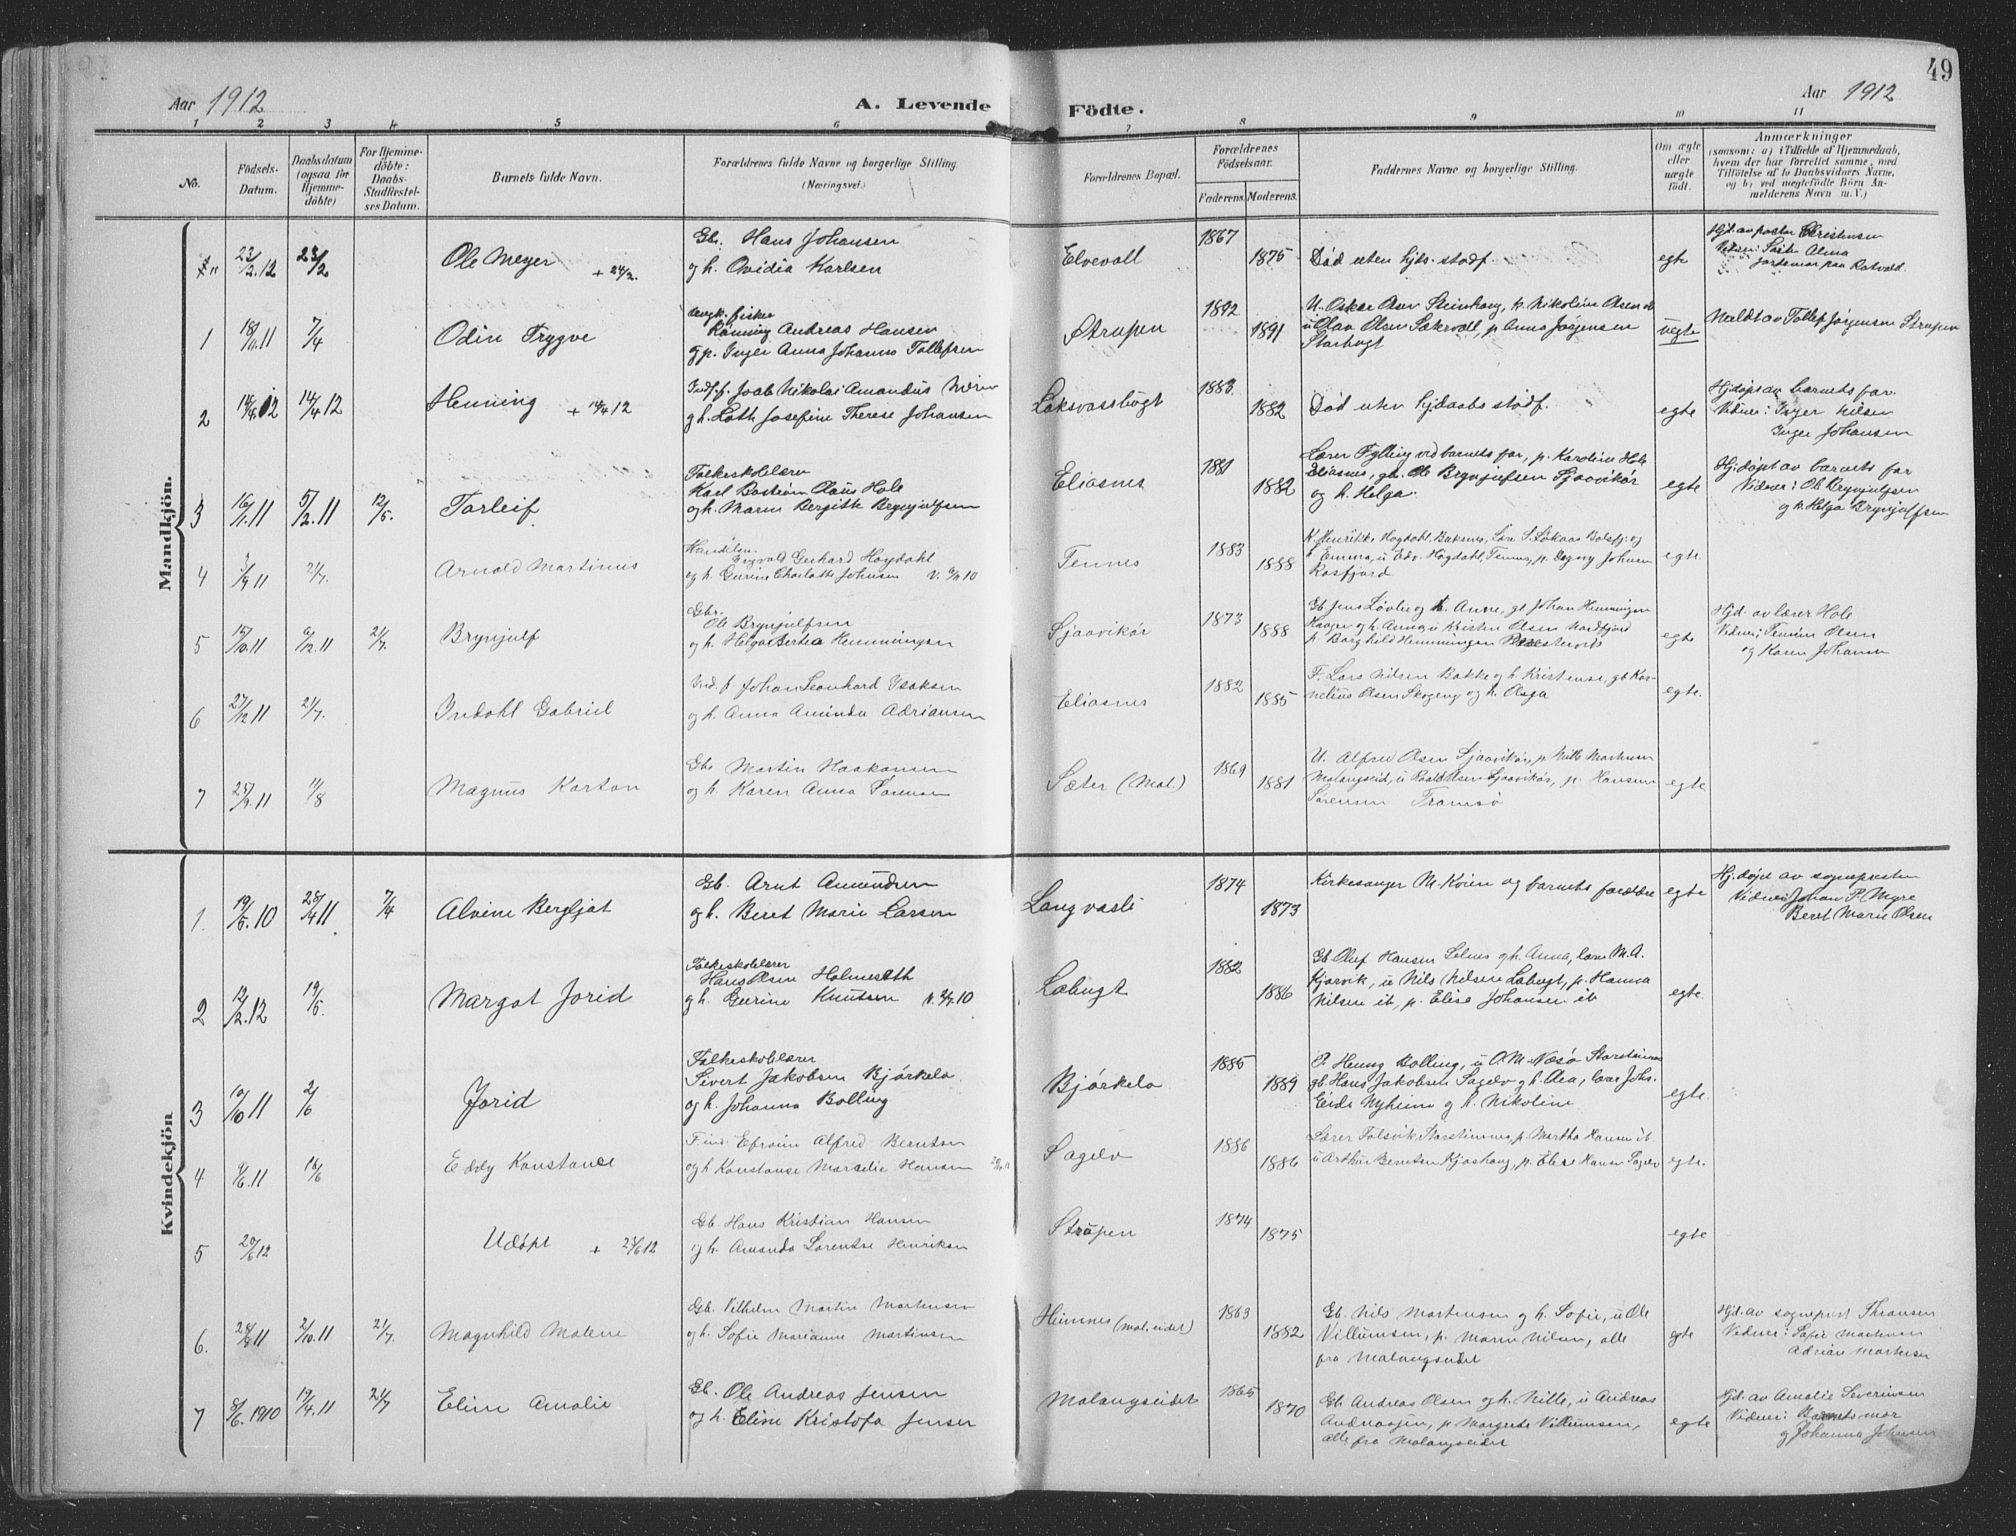 49
Aar 1912
A. Levende Födte.
Aar 1912
1 2 3 4 5 6 7 8 9 10 11
No.
Födsels-Datum.
Daabsdatum (ogsaa for Hjemme-döbte)
For Hjemme-döbte: Daabs-Stadfestel-ses Datum.
Barnets fulde Navn.
Forældrenes fulde Navne og borgerlige Stilling.
(Næringsvei.)
Forældrenes Bopæl.
Forældrenes Födselsaar.
Faderens. Moderens.
Faddernes Navne og borgerlige Stilling.
Om ægte eller uægte födt.
Anmærkninger
(saasom: a) i Tilfælde af Hjemmedaab, hvem der har forrettet samme, med Tilföielse af to Daabsvidners Navne, og b) ved uægtefödte Börn An-melderens Navn m. V.)
Mandkjön.
23/3.12 23/2 Ole Meyer + 24/2.
Gbr. Hans Johansen
og h. Ovidia Karlsen
Elvevoll 1867 1875 Död uten hjds. stadf. egte
Hjd. av pastor Christensen
Vidner: Alma
jordemor paa Rotvold.
1 18/11.11 7/4 Odin Trygve
ungk. fisker
Rönning Andreas Hansen
og p. Inger Anna Johanna Tollefsen
Strupen 1892 1891
U. Oskar Olsen Steinhaug, p. Nikoline Olsen
u Olav Olsen Sækrvoll, p. Anna Jörgensen
Storbugt
uegte
Meldt av Tollef Jörgensen Strupen
2 14/4.12 14/4 12 Henning + 14/4 12
Indf. f. Joab Nikolai Amandus
og h. Loth Josefine Therese Johansen
Laksvassbugt 1883 1882 Död uten hjdaabs stadf. egte
Hjdöpt av barnets far.
Vidner: Inger Nilsen
Inger Johansen
3 16/11.11 5/12.11 12/5. Torleif
Folkeskolelærer
Karl Boström Olaus Hole
og h. Maren Bergitte Brynjulfsen
Eliasnes 1881 1882
Lærer Fylling ved barnets far, p. Karoline Hole
Eliasnes, gb. Ole Brynjulfsen Sjaavikör
og h. Helga.
egte
Hjdöpt av barnets far
Vidner: Ole Brynjulfsen
og h. Helga Brynjulfsen
4 3/9 11 21/7. Arnold Martinus
Handelsm.
Sigvald Gerhard Hogdahl
og h. Gurine Charlotte Johnsen V. 10
Tennes 1883 1888
K. Henrikke Hogdahl, Baksnes,
h. Emma, u Edv. Hogdahl, Tennes, p. Dagny Johnsen
Rossfjord
egte
5 15/10.11 6/12.11 21/7. Brynjulf
Gbr.
Ole Brynjulfsen
og h. Helga Bertea Hemmingsen
Sjaavikör 1873 1888
Gb. Jens Lövlie og h. Anne, gt Johan Hemmingsen
Haagen og h. Anna, u Kristen Olsen Nordfjord
p. Borghild Hemmingsen
egte
Hjd. av lærer Hole
Vidner: Tomine Olsen
og Karen Johansen
6 27/12 11 21/7. Indahl Gabriel
Ind. f. Johan Leonhard Isaksen
og h. Anna Aminda Adriansen
Eliasnes 1882 1885
F. Lars Nilsen Bakke og h. Kristense, gb Kor-
nelius Olsen Skogeng og h. Olga
egte.
7 25/9.11 11/8 Magnus Karton
Gbr Martin Haakonsen
og h. Karen Anna Sörensen
Sæter (Mal.) 1869 1881
U. Alfred Olsen Sjaavikör, p. Nille Markussen
Malangseid, u Roald Olsen Sjaavikör, p. Hansen
Sörensen Tromsö
egte
Kvindekjön
1. 19/5.10 25/4 11 7/4 Alvine Bergljot
Gb. Arnt Amundsen
og h. Beret Marie Larsen
Langvasli 1874 1873 Kirkesanger M. Koien og barnets forældre egte
Hj.döpt av sognepresten
Vidner: Johan P. Myre
Beret Marie Olsen
2 12/2.12 19/5. Margot Jorid
Folkeskolelærer
Hans Olsen Holmeseth
og h. Gurine Knutsen V. 10
Labugt 1882 1886
Gb Oluf Hansen Selnes og h. Anna, lærer M. A.
Kjærvik, u Nils Nilsen Labugt, p. Hanna
Nilsen ib, p. Elise Johansen ib
egte.
3 10/10 11 2/6 Jorid
Folkeskolelærer
Sivert Jakobsen Björkelo.
og h. Johanna Bolling
Björkelo 1885 1889
P. Henny Bolling, u A. M. Næsö Storsteinnes
gb. Hans Jakobsen Sagelv og h. Aea, lærer Johs.
Eide Nyheim og h. Nikoline
egte.
4 9/6.11 16/6 Edoly Konstance
F. ind. Efraim Alfred Berntsen
og h Konstanse Marselie Hansen
Sagelv 1886 1886
Lærer Folsvik, Storsteinnes, p. Martha Hansen ib.
u Arthur Berntsen Kjoshaug, p. Elise Hansen Sagelv
egte.
5 20/6 12 Udöpt + 23/6 12
Gb. Hans Kristian Hansen
og h. Amanda Lorentse Henriksen
Strupen 1874 1875 egte
6. 24/9 11 2/10.11 21/7. Magnhild Malene
Gb. Vilhelm Martin Martensen
og h. Sofie Marianne Martinsen
Heimnes (mal. eidet) 1863 1882
Gb. Nils Mortensen og h. Sofie, u Ole
Villumsen, p. Maren Nilsen, alle
fra Malangseidet
egte
Hjd. av sogneprest Thransen
Vidner: Sofie Martensen
Adrian Martensen
7 8/6.1910 17/4.11 21/7 Eline Amalie
Gb. Ole Andreas Jensen
og h. Eline Kristofa Jensen
Malangseidet 1865 1870
Gb Andreas Olsen og h. Nille, u Andreas
Andreassen, p Margrete Villumsen,
alle fra Malangseidet
egte
Hjd. av Amalie Severinsen
Vidner: Barnets mor
og Johanna Johnsen